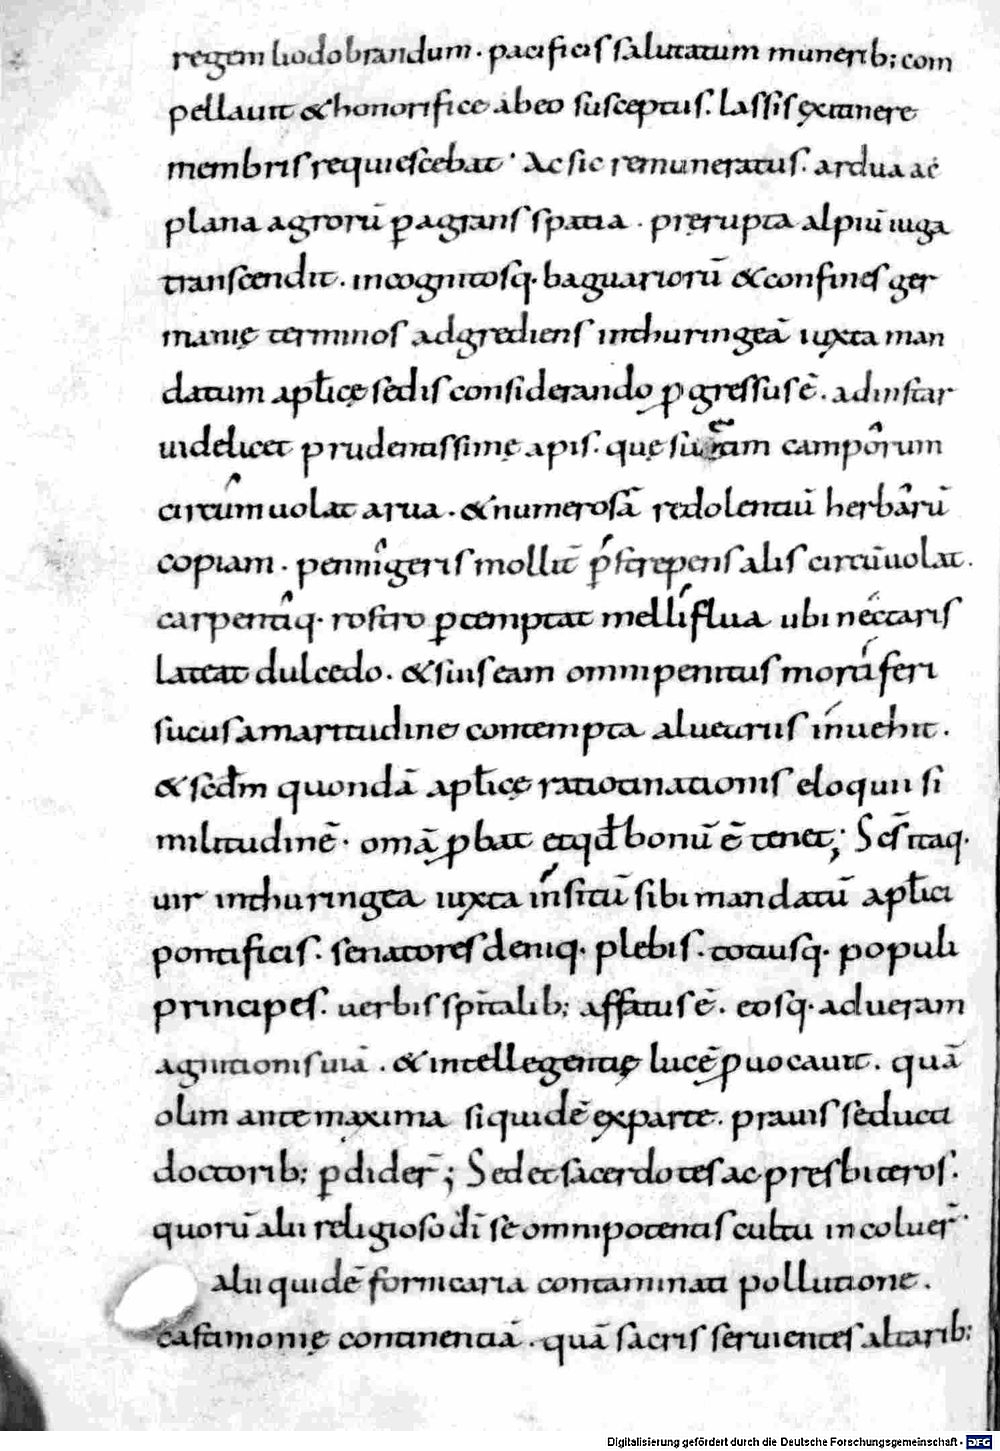 regem liodobrandum · pacificis salutatum munerib; com
pellauit & honorifice ab eo susceptus. lassis ex itinere
membris requiescebat · Ac sic remuneratus. ardua ac
plana agrorū ꝑagrans spatia · pręrupta alpiū iuga
transcendit. incognitosq· baguariorū & confines ger
manię terminos adgrediens inthuringeā iuxta man
datum apɫicę sedis considerando ꝓgressus ē. adinstar
uidelicet prudentissimę apis. quę camporum
circumuolat arua. & numerosā redolentiū herbarū
copiam. pennigeris mollit̄ ꝑstrepens alis circūuolat.
carpentiq· rostro ꝑtemptat melliflua ubi nectaris
lateat dulcedo. & suis eam omni penitus mortiferi
sucus amaritudine contempta aluearius inuehit.
& scđm quondā apɫicę ratiocinationis eloquii si
militudinē· omā ꝓbat et qđ bonū ē tenet; Scs̄ itaq·
uir inthuringea iuxta insitū sibi mandatū apɫici
pontificis. senatores deniq· plebis. totiusq· populi
principes. uerbis spīitalib; affatus ē. eosq· ad ueram
agnitionis uiā. & intellegentię lucē ꝓuocauit. quā
olim ante maxima siquidē ex parte. prauis seducti
doctorib; ꝑdider̄; Sed et sacerdotes ac presbiteros.
quorū alii religioso dī se omnipotentis cultu incoluer̄·
alii quidē fornicaria contaminati pollutione.
castimonię continentiā. quā sacris seruientes altarib;
Digitalisierung gefördert durch die Deutsche Forschungsgemeinschaft - DFG